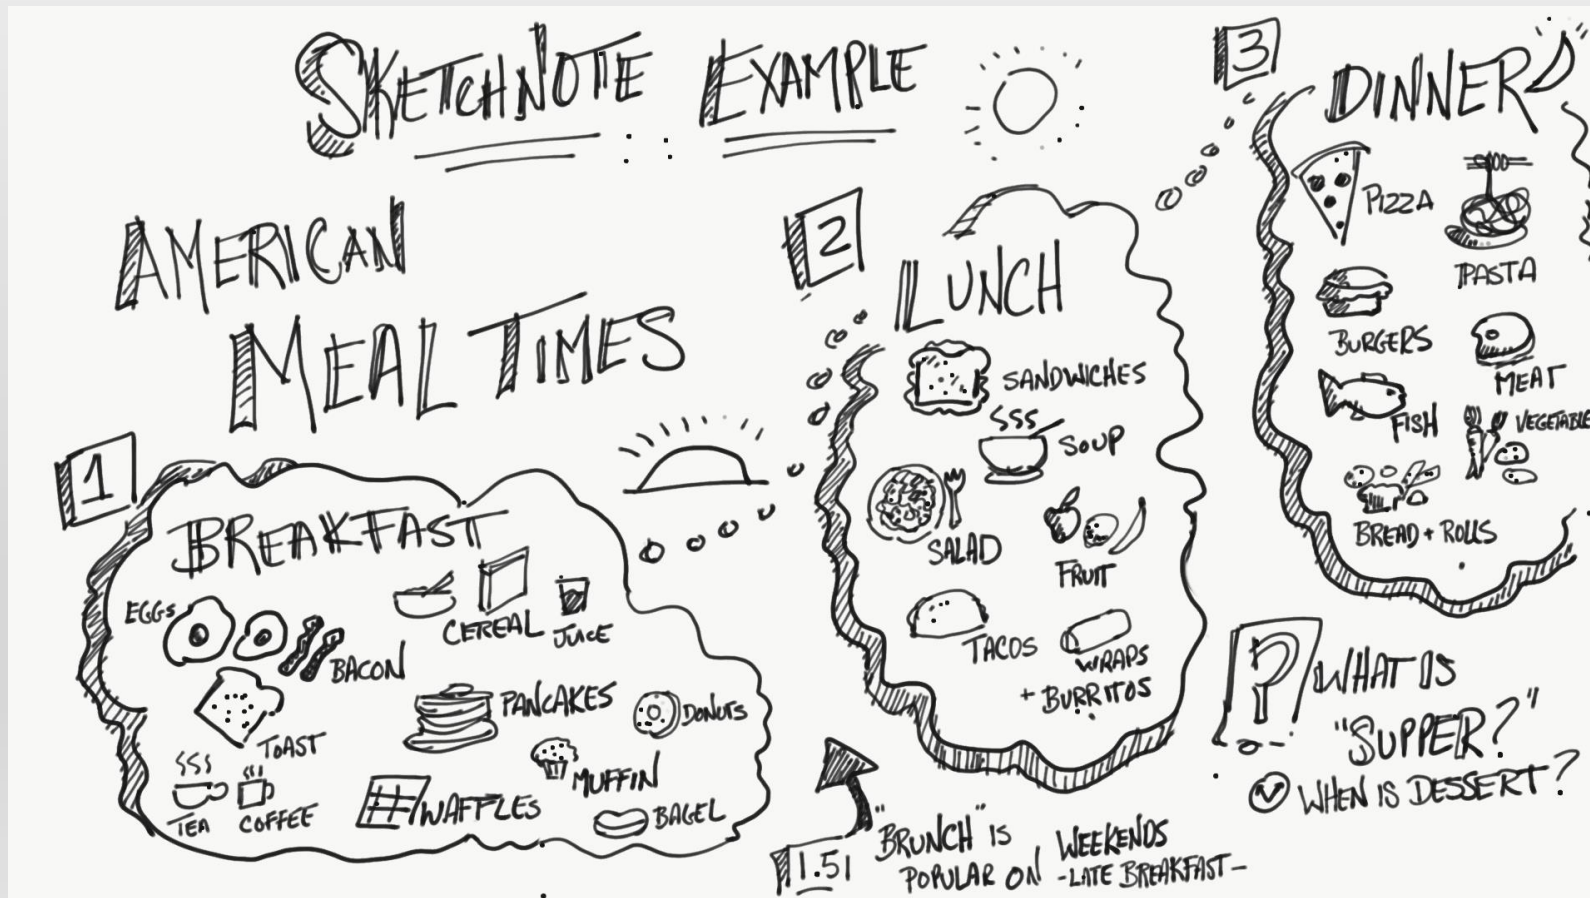 SKETCHNOTE EXAMPLE
AMERICAN
MEAL TIMES
1
BREAKFAST
EGGS
BACON
CEREAL
JUICE
TOAST
PANCAKES
DONUTS
TEA
COFFEE
WAFFLES
MUFFIN
BAGEL
2
LUNCH
SANDWICHES
SOUP
SALAD
FRUIT
TACOS
WRAPS
+ BURRITOS
1.5
"BRUNCH" IS
POPULAR ON
WEEKENDS
-LATE BREAKFAST-
3
DINNER
PIZZA
PASTA
BURGERS
MEAT
FISH
VEGETABLE
BREAD + ROLLS
?
WHAT IS
"SUPPER?"
WHEN IS DESSERT?